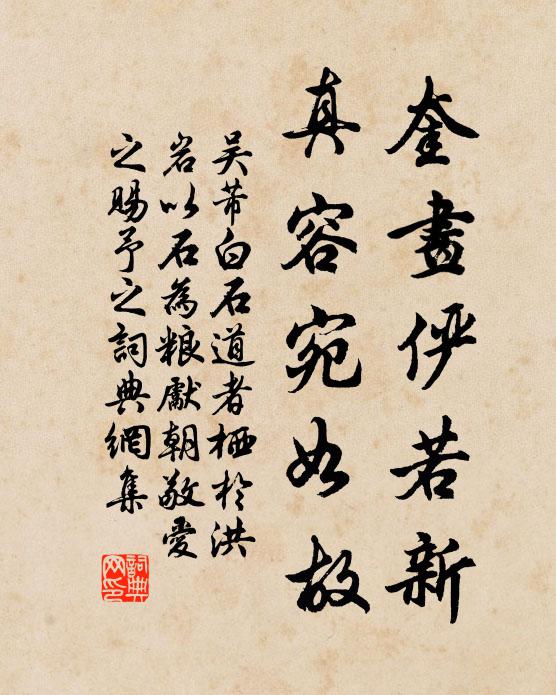 奎畫俨若新
真容宛如故
吴芾白石道者栖於洪
岩以石為粮獻朝敬愛
之赐予之詞典網集
詞典網印